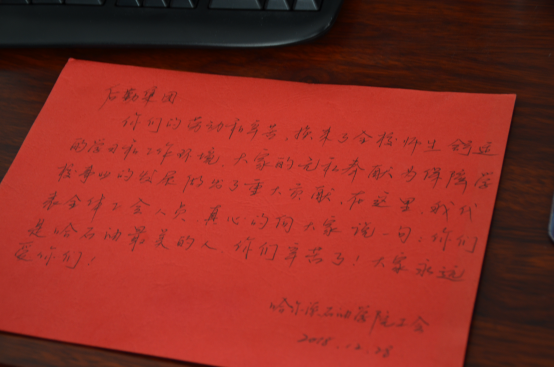 后勤集团
你们的劳动和辛苦，换来了全校师生舒适
的学习和工作环境，大家的无私奉献为保障学
校事业的发展做出了重大贡献，在这里，我代
表全体工会人员，真心的向大家说一句，你们
是哈石油最美的人，你们辛苦了！大家永远
爱你们！
哈尔滨石油学院工会
2018.12.28